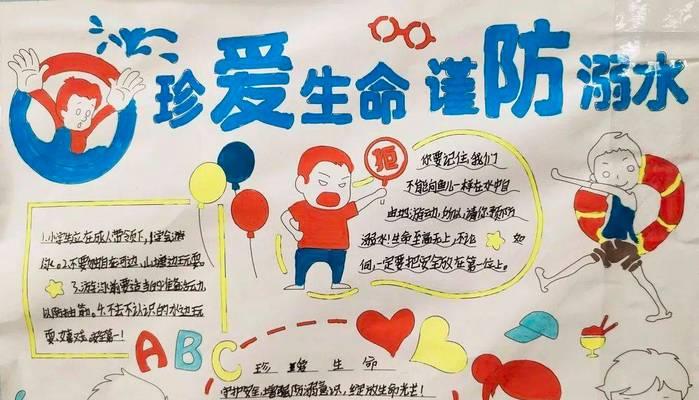 珍爱生命 谨防溺水
拒
你要记住,我们
不能向鱼儿一样在水中自
由地游动,所以,请你预防
溺水!生命至高无上,不论 如
何,一定要把安全放在第一位上。
1.小学生应在成人带领下,学会游
泳。2.不要独自在河边、山塘边玩耍。
3.游泳前要适当的准备活动,
以防抽筋。4.不去不认识的水边玩
耍、嬉戏。安全第一!
ABC
珍 惜 生 命
守护安全,增强防溺意识,绽放生命光芒!